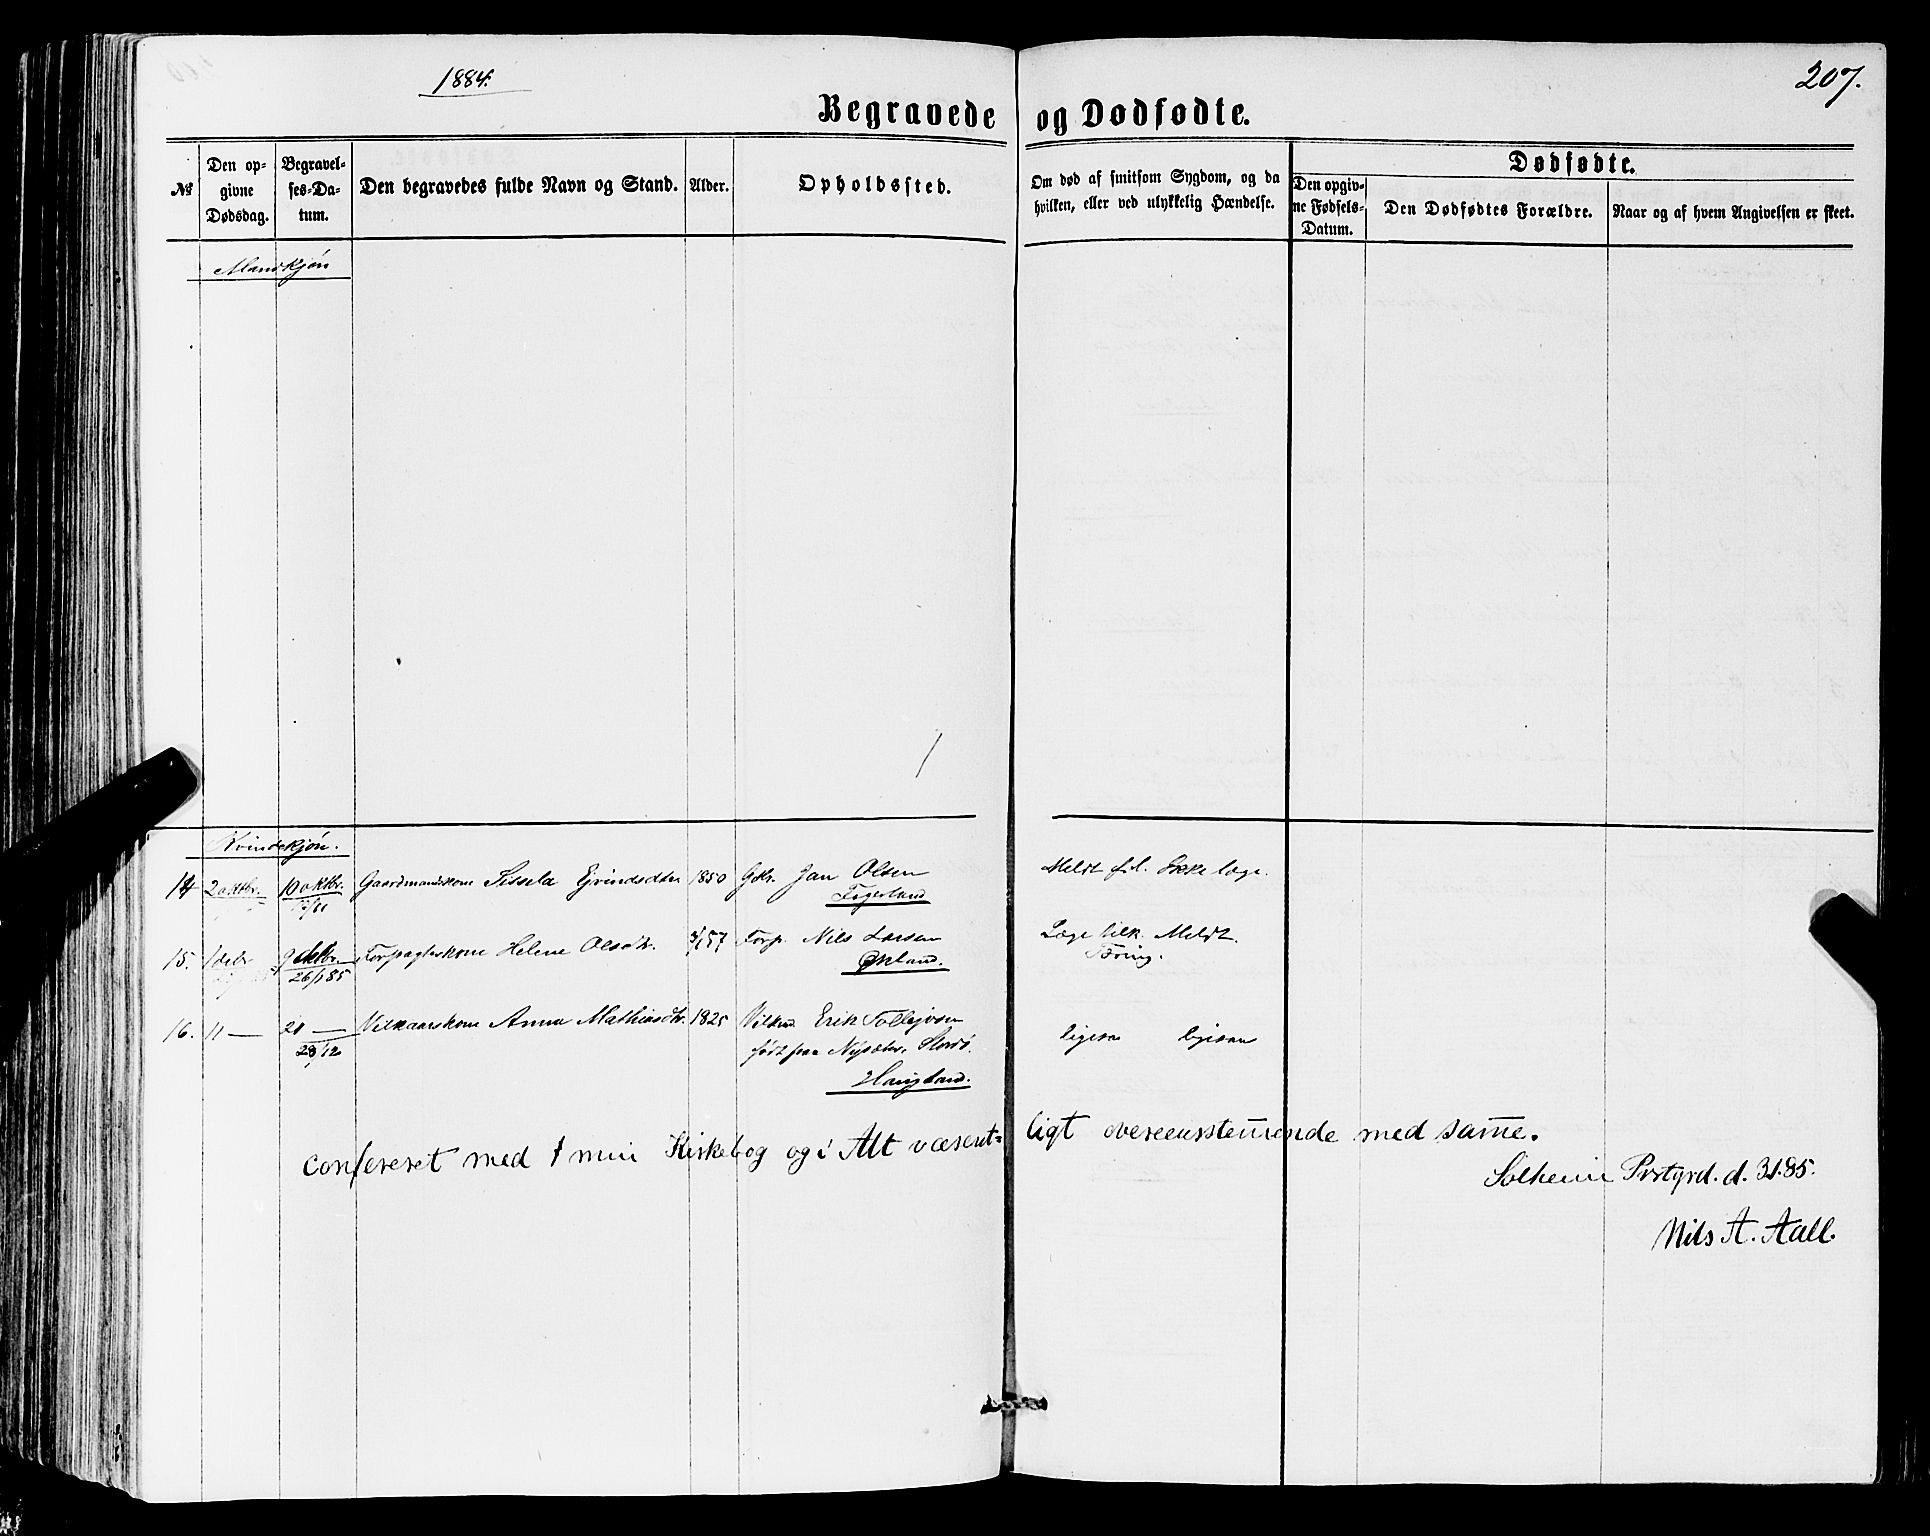 1884.
207.
Begravede og Dødfødte.
No
Den opgivne Dødsdag.
Begravelses-Datum.
Den begravedes fulde Navn og Stand.
Alder.
Opholdssted.
Om død af smitsom Sygdom, og da hvilken, eller ved ulykkelig Hændelse.
Dødfødte.
Den opgivne Fødsels-Datum.
Den Dødfødtes Forældre.
Naar og af hvem Angivelsen er skeet.
Mandkjøn
Kvindekjøn.
14 2 oktbr. 10 oktbr. Gaardmandskone Sissela Ejvindsdtr 1850 Gdr. Jan Olsen Meldt Ikke læge.
Fegerland
15. 1 9 Forpagterskone Helene Olsdtr. 57 Forp. Nils Larsen Læge tilk. Meldt.
26/1 85 Økland. Tæring.
16. 11 — 21 — Vilkaarskone Anna Mathiasdtr. 1825 Vilkmd. Erik Tollefsen ligesaa ligesaa
28/12 født paa Stordø.
Haugland.
confereret med min Kirkebog og i Alt væsentligt overeensstemmende med samme.
Solheim Prstgrd. d. 3/1.85.
Nils A. Aall.